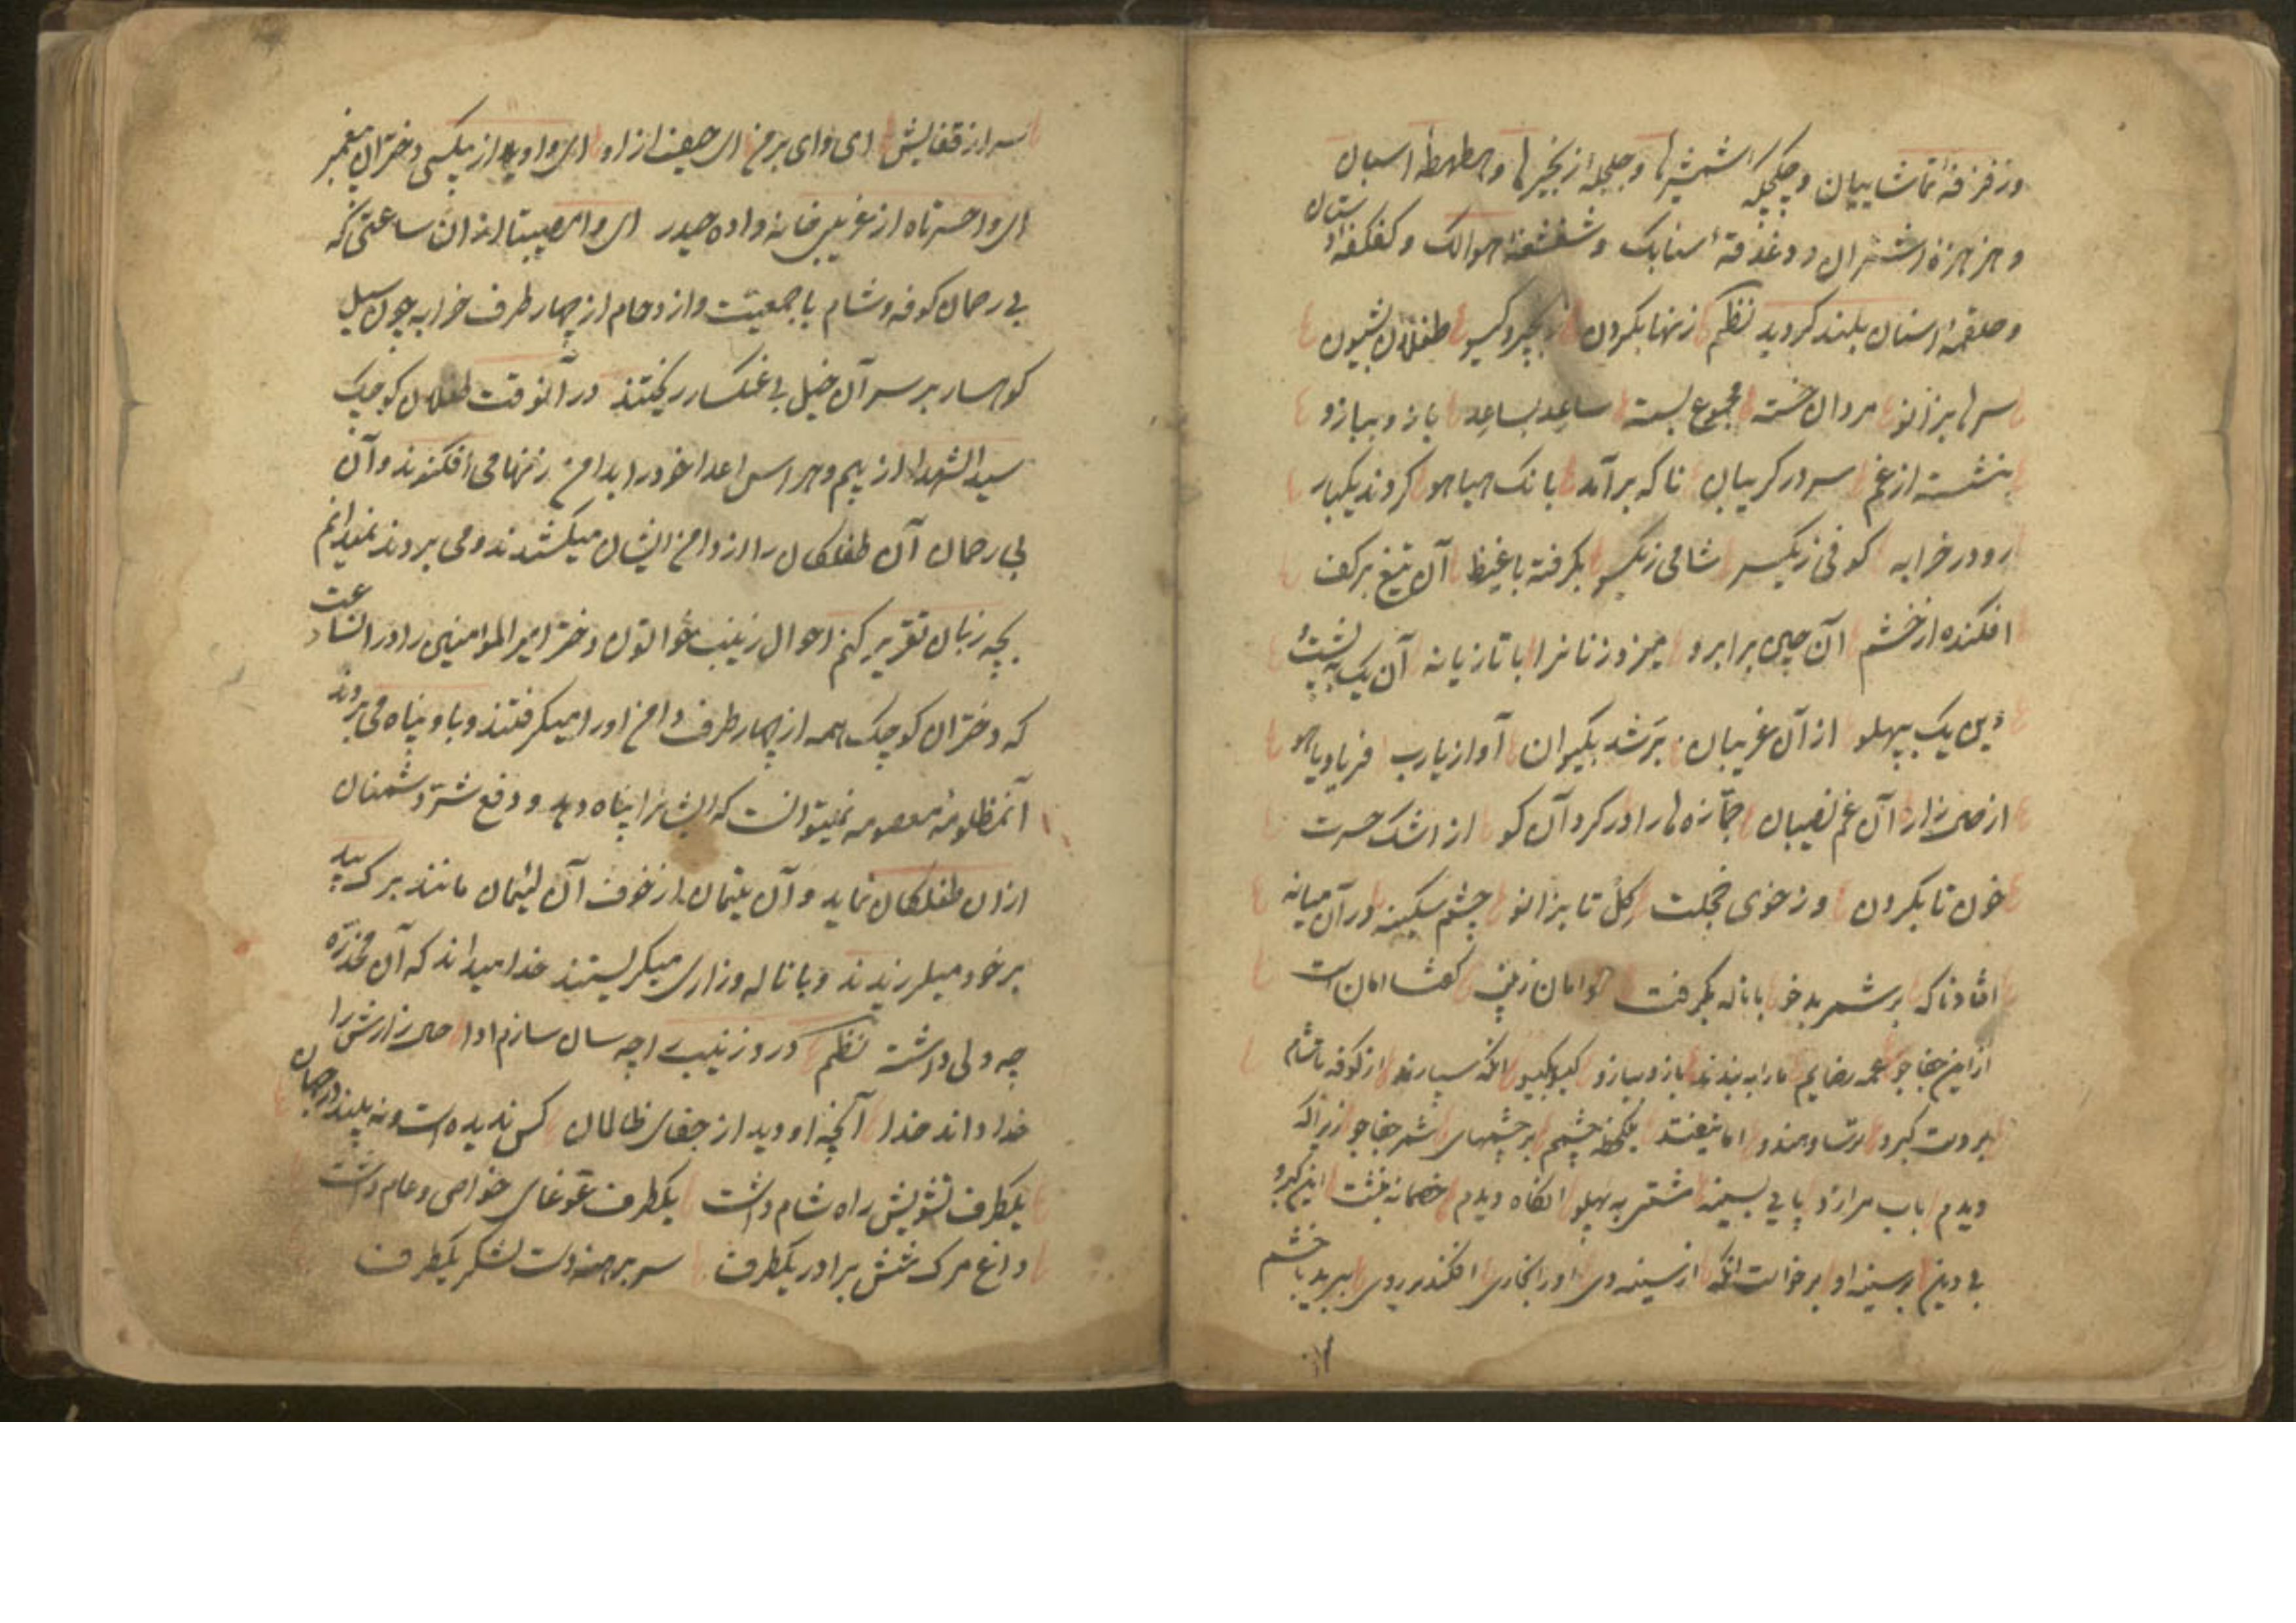 وزفزفهٔ تماشاییان و چکچکهٔ شمشیرها و جلجلهٔ زنجیرها و طهطههٔ اسبان
و هزهزهٔ اشتران و دغدغهٔ سنابک و شغشغهٔ هوالک و کفکفهٔ
وحلقهٔ استان بلند کردید نظم زنها بکردن زنجیر و کیسو طفلان بشیون
سرها بزانو مردان خسته مجموع بسته ساعد بساعد بازو ببازو
بنشسته از غم سر در کریبان ناکه برآمد بانک هیاهو کردند یکبار
رو در خرابه کوفی ز یکسر شامی ز یکسو بکرفته با غیظ آن تیغ بر کف
افکنده از خشم آن چین بر ابرو میزد زنانرا با تازیانه آن یک به پشت
وین یک بپهلو از آن غریبان بر شد بکیوان آواز یارب فریاد یاهو
از حال زار آن غم نصیبان جمازه ها را در کرد آن کو از اشک حسرت
خون تا بکردن وز خوی خجلت کل تا بزانو چشم سکینه در آن میانه
افتاد ناکه بر شمر بدخو با ناله بکرفت دامان زینب کفتا امان است
از این جفاجو عمه رضایم ما را ببندند بازو ببازو کیسو بکیسو آنکه سپارند از کوفه تا شام
بر دست کبر و ترسا و هندو اما نیفتد یکلحظه چشمم بر چشمهای شمر جفاجو زیراکه
دیدم باب مرا زد پایی بسینه مشتی به پهلو آنکاه دیدم خصمانه بنشست این کبر و
بی دین بر سینه او برخواست آنکه از سینه وی او را بخاری افکند بر روی ببرید با خشم
سر از قفایش ای وای بر من ای حیف از او ای واویلا از بیکسی دختران پیغمبر
ای واحسرتاه از غریبی خانواده حیدر ای وامصیبتا از ان ساعتی که
بی رحمان کوفه و شام با جمعیت و ازدحام از چهار طرف خرابه چون سیل
کوهسار بر سر آن خیل بی غمکسار ریختند در آنوقت طفلان کوچک
سید الشهدا از بیم و هراس اعدا خود را بدامن زنها می افکندند و آن
بی رحمان آن طفلکان را از دامن ایشان میکشیدند و می بردند نمیدانم
بچه زبان تقریر کنم احوال زینب خواتون دختر امیر المومنین را در انساعت
که دختران کوچک همه از چهار طرف دامن او را میکرفتند و باو پناه می بردند
آنمظلومهٔ معصومه نمیتوانست که ایشانرا پناه دهد و دفع شر دشمنان
از ان طفلکان نماید و آن یتیمان از خوف آن لئیمان مانند برک بید
بر خود میلرزیدند و با ناله و زاری میکریستند خدا میداند که آن مخدره
چه دلی داشت نظم درد زینب را چه سان سازم ادا حال زارش را
خدا داند خدا آنچه او دید از جفای ظالمان کس ندیده است و نه بیند در جهان
یکطرف تشویش راه شام داشت یکطرف غوغای خواص و عام داشت
داغ مرک شش برادر یکطرف سر برهنه دست لشکر یکطرف